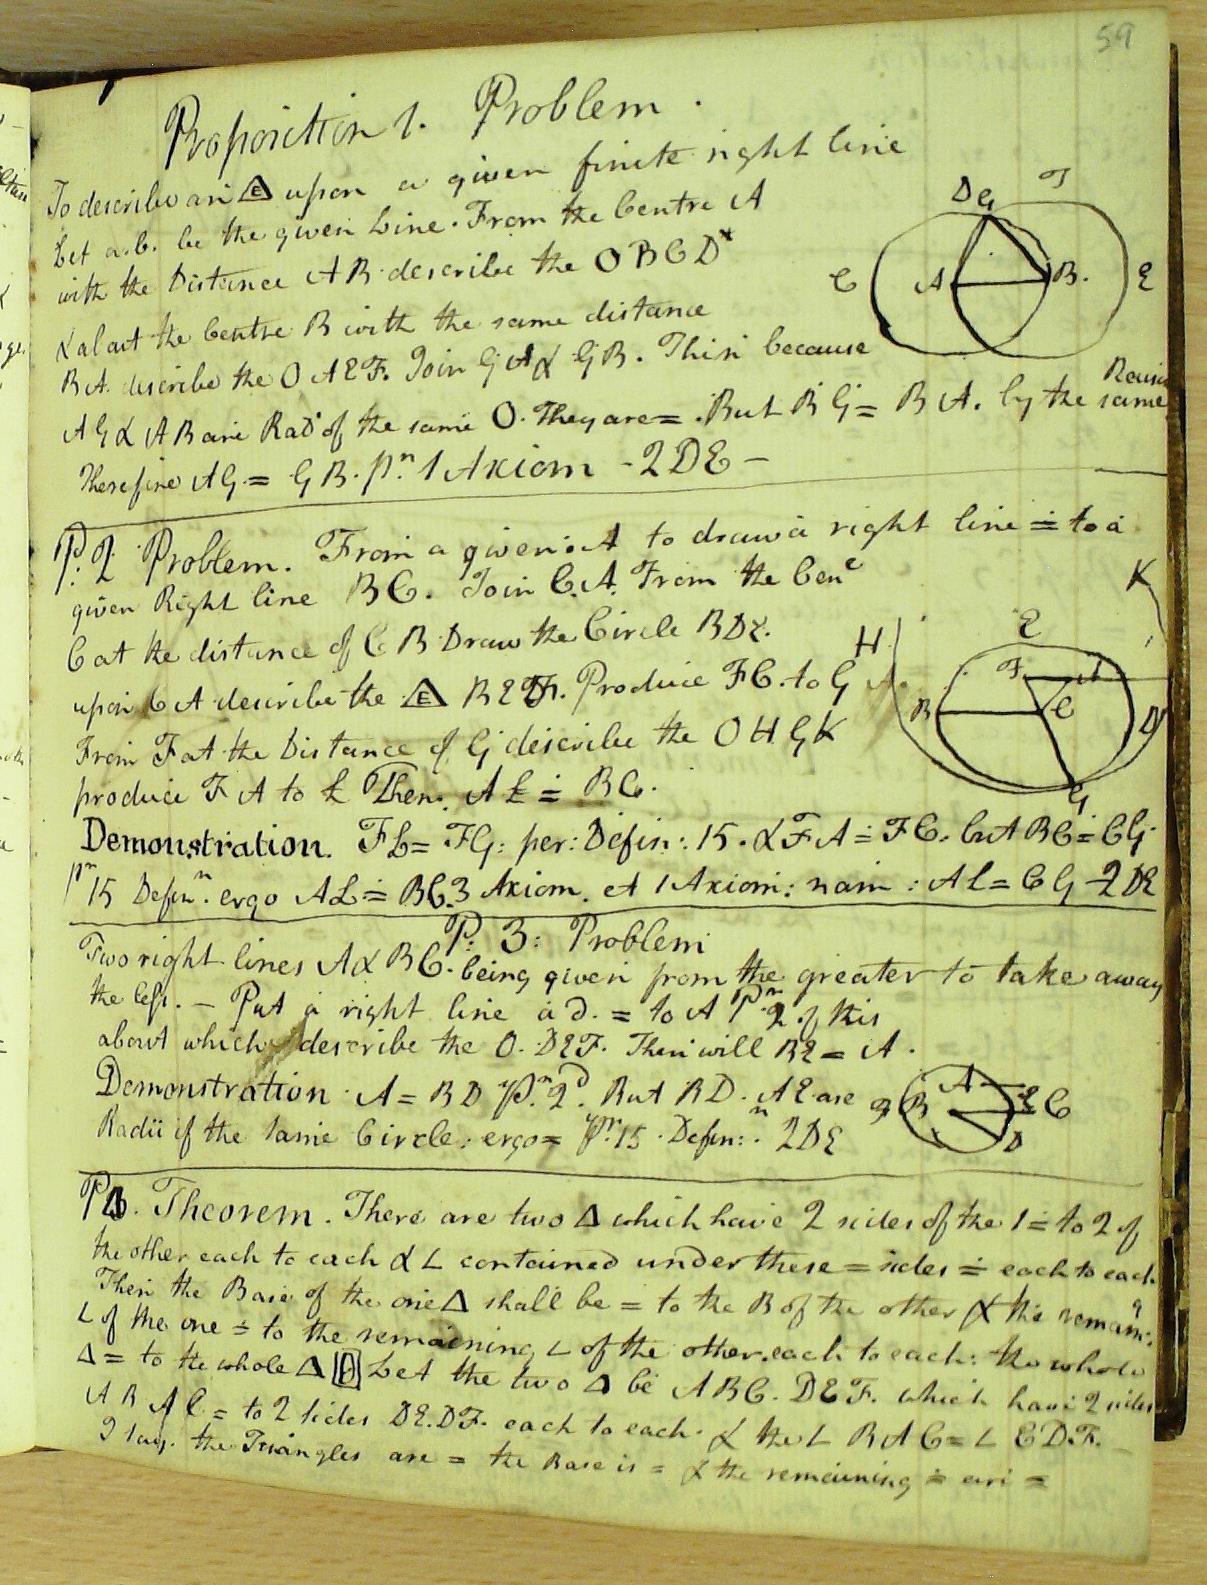 59
Proposition 1. Problem.
To describe an △E upon a given finite right line
Let a.b. be the given Line. From the Centre A
with the Distance AB describe the O BCD
& about the Centre B with the same distance
BA. describe the O AEF. Join GA & GB. Then because
AG & AB are Rad of the same O. They are = . But BG = BA. by the same
Therefore AG = GB. pn. 1 Axiom - 2DE -
D G F
C A B. E
P. 2 Problem. From a given . A to draw a right line = to a
given Right line BC. Join C.A. From the Cene
C at the distance of CB Draw the Circle BDE.
upon CA describe the △E Produce FC. to G
From F at the Distance of G describe the O HGK
produce FA to L Then. AL = BC.
H K E F A B C D G
Demonstration. FL = FG: per: Defin: 15. & FA = FC. but BC = CG.
pn 15 Defin.n ergo AL = BC. 3 Axiom. et 1 Axiom: nam: AL = CG - 2DE
P. 3: Problem
Two right lines A & BC. being given from the greater to take away
the less. - Put a right line a d. = to A Pn. 2 of this
about which describe the O. DEF. Then will BE = A.
Demonstration A = BD pn. 2d. But BD. AE are
Radii if the same Circle: ergo = pn. 15. Defin:n. 2DE
A B E C D
P4. Theorem. There are two △ which have 2 sides of the 1 = to 2 of
the other each to each & ∠ contained under these = sides = each to each
Then the Base of the one △ shall be = to the B of the other & the remaing
∠ of the one = to the remaining ∠ of the other. each to each: the whole
△ = to the whole △ Let the two △ be ABC. DEF. which have 2 sides
AB AC = to 2 sides DE. DF. each to each. & the ∠ BAC = ∠ EDF.
I say. the Triangles are = the Base is = & the remaining = are =